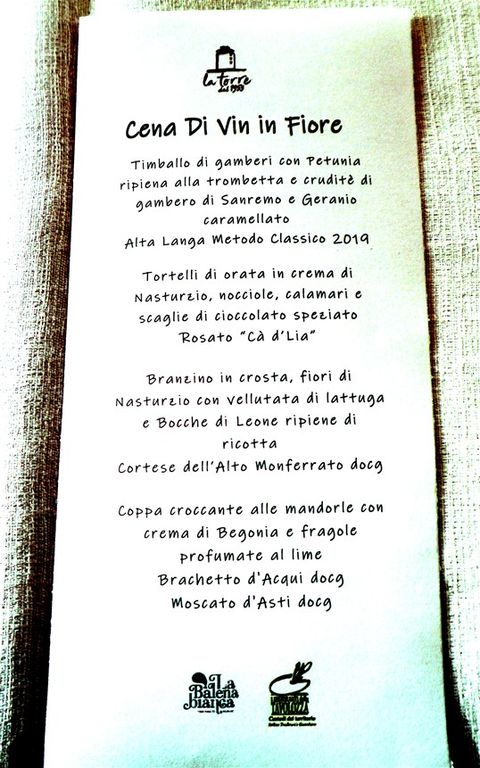 la torre
dal 1953
Cena Di Vin in Fiore
Timballo di gamberi con Petunia
ripiena alla trombetta e cruditè di
gambero di Sanremo e Geranio
caramellato
Alta Langa Metodo Classico 2019
Tortelli di orata in crema di
Nasturzio, nocciole, calamari e
scaglie di cioccolato speziato
Rosato "Cà d'Lia"
Branzino in crosta, fiori di
Nasturzio con vellutata di lattuga
e Bocche di Leone ripiene di
ricotta
Cortese dell'Alto Monferrato docg
Coppa croccante alle mandorle con
crema di Begonia e fragole
profumate al lime
Brachetto d'Acqui docg
Moscato d'Asti docg
La
Balena
bianca